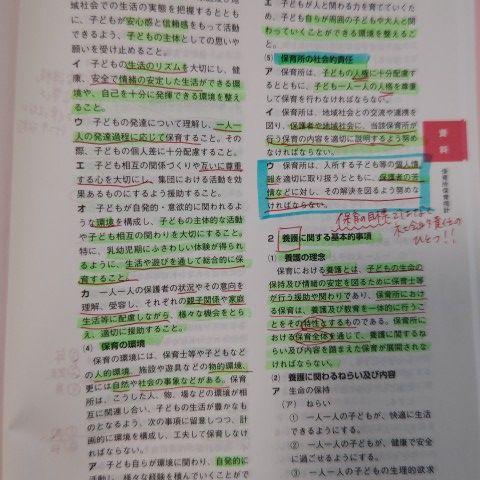 域社会での生活の実態を把握するととも
に、子どもが安心感と信頼感をもって活動
できるよう、子どもの主体としての思いや
願いを受け止めること。
イ 子どもの生活のリズムを大切にし、健
康、安全で情緒の安定した生活ができる環
境や、自己を十分に発揮できる環境を整え
ること。
ウ 子どもの発達について理解し、一人一
人の発達過程に応じて保育すること。その
際、子どもの個人差に十分配慮すること。
エ 子ども相互の関係づくりや互いに尊重
する心を大切にし、集団における活動を効
果あるものにするよう援助すること。
オ 子どもが自発的・意欲的に関われるよ
うな環境を構成し、子どもの主体的な活動
や子ども相互の関わりを大切にすること。
特に、乳幼児期にふさわしい体験が得られ
るように、生活や遊びを通して総合的に保
育すること。
カ 一人一人の保護者の状況やその意向を
理解、受容し、それぞれの親子関係や家庭
生活等に配慮しながら、様々な機会をとら
え、適切に援助すること。
(4) 保育の環境
保育の環境には、保育士等や子どもなど
の人的環境、施設や遊具などの物的環境、
更には自然や社会の事象などがある。保育
所は、こうした人、物、場などの環境が相
互に関連し合い、子どもの生活が豊かなも
のとなるよう、次の事項に留意しつつ、計
画的に環境を構成し、工夫して保育しなけ
ればならない。
ア 子ども自らが環境に関わり、自発的に
活動し、様々な経験を積んでいくことがで
エ 子どもが人と関わる力を育てていくた
め、子ども自らが周囲の子どもや大人と関
わっていくことができる環境を整えること。
(5) 保育所の社会的責任
ア 保育所は、子どもの人権に十分配慮す
るとともに、子ども一人一人の人格を尊重
して保育を行わなければならない。
イ 保育所は、地域社会との交流や連携を
図り、保護者や地域社会に、当該保育所が
行う保育の内容を適切に説明するよう努め
なければならない。
ウ 保育所は、入所する子ども等の個人情
報を適切に取り扱うとともに、保護者の苦
情などに対し、その解決を図るよう努めな
ければならない。
2 養護に関する基本的事項
(1) 養護の理念
保育における養護とは、子どもの生命の
保持及び情緒の安定を図るために保育士等
が行う援助や関わりであり、保育所におけ
る保育は、養護及び教育を一体的に行うこ
とをその特性とするものである。保育所に
おける保育全体を通じて、養護に関するね
らい及び内容を踏まえた保育が展開されな
ければならない。
(2) 養護に関わるねらい及び内容
ア 生命の保持
(ア) ねらい
① 一人一人の子どもが、快適に生活
できるようにする。
② 一人一人の子どもが、健康で安全
に過ごせるようにする。
③ 一人一人の子どもの生理的欲求
資料
保育所保育指針
ひとつ!!